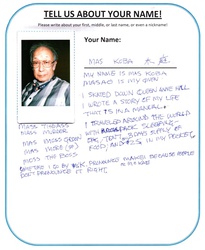 TELL US ABOUT YOUR NAME!
Please write about your first, middle, or last name, or even a nickname!
Your Name:
MAS KOBA 木庭
MY NAME IS MAS KOBA
MASAO IS MY GIVEN
I SKATED DOWN QUEEN ANNE HILL
I WROTE A STORY OF MY LIFE
THAT IS IN A MANUAL.
I TRAVELED AROUND THE WORLD
WITH BACK SLEEPING
TENT, 3 DAYS SUPPLY OF
FOOD, AND $25 IN MY POCKET
MASS
MASS MURDER
MASS MOSS GROW
MAS MORE (SP)
MASS THE BOSS
SOMETIMES I GO BY MIKE PRONOUNCE BECAUSE PEOPLE
DON'T PRONOUNCE IT RIGHT